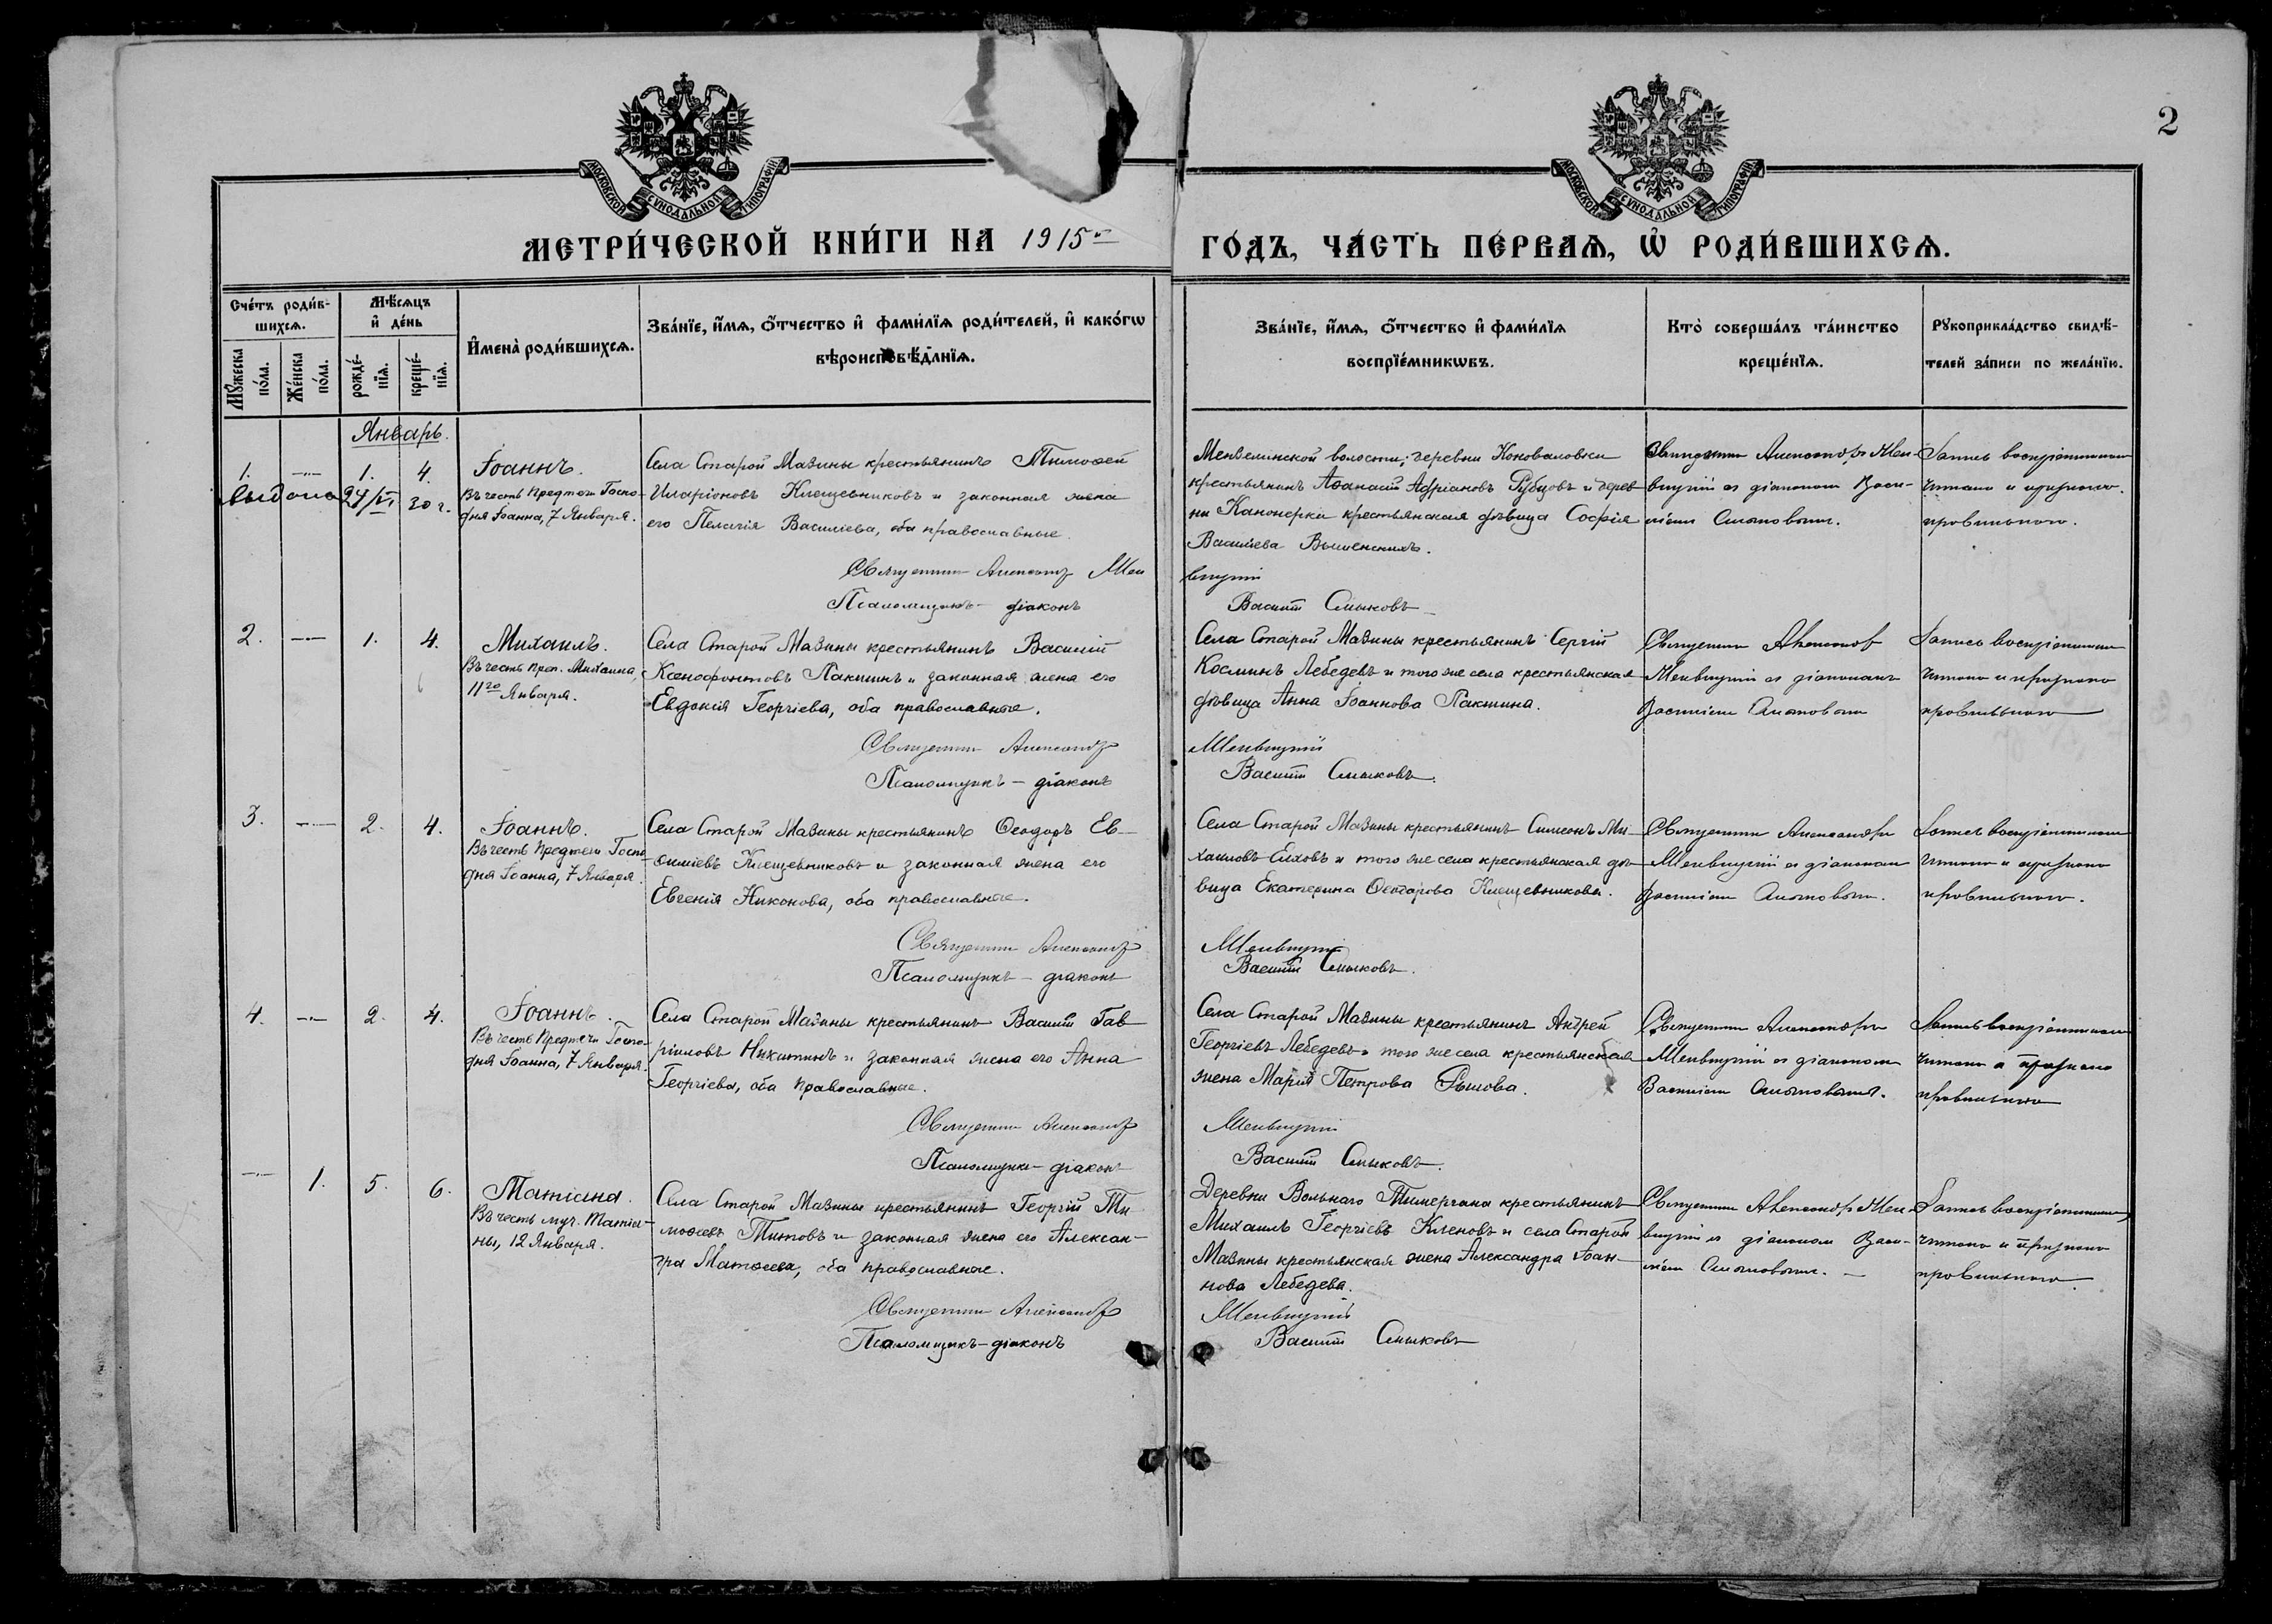 2
МОСКОВСКОЙ СУНОДАЛЬНОЙ ТИПОГРАФІИ
МОСКОВСКОЙ СУНОДАЛЬНОЙ ТИПОГРАФІИ
МЕТРИ́ЧЕСКОЙ КНИ́ГИ НА 1915й
ГО́ДЪ, ЧА́СТЬ ПЕ́РВАѦ, Ѡ҆ РОДИ́ВШИХСѦ.
Сче́тъ роди́в-
шихсѧ.
Мꙋжеска по́ла.
Же́нска по́ла.
Мѣ́сѧцъ
и҆ де́нь
рожде́-нїѧ.
креще́-нїѧ.
И҆мена̀ роди́вшихсѧ.
Зва́нїе, и҆́мѧ, ѻ҆́тчество и҆ фами́лїѧ роди́телей, и҆ како́гѡ
вѣроисповѣ́данїѧ.
Зва́нїе, и҆́мѧ, ѻ҆́тчество и҆ фами́лїѧ
воспрїе́мникѡвъ.
Кто̀ соверша́лъ та́инство
креще́нїѧ.
Рꙋкоприкла́дство свидѣ́-
телей за́писи по жела́нїю.
Январь.
1. — 1. 4.
Выдана 24/VI 30 г.
Іоаннъ.
Въ честь Предтечи Госпо-
дня Іоанна, 7 Января.
Села Старой Мазины крестьянинъ Тимоѳей
Иларіоновъ Клещевниковъ и законная жена
его Пелагія Василіева, оба православные.
Священникъ Александръ Мен
Псаломщикъ - діаконъ
Мензелинской волости, деревни Коноваловки
крестьянинъ Аѳанасій Адріановъ Рубцовъ и дерев
ни Канонерки крестьянская дѣвица Софія
Василіева
Василій Смыковъ
Священникъ Александръ Мен-
съ діакономъ Васи-
ліемъ Смыковымъ.
Запись воспріемникамъ
читана и признана
правильною.
2. — 1. 4.
Михаилъ.
Въ честь преп. Михаила,
11го Января.
Села Старой Мазины крестьянинъ Василій
Ксенофонтовъ Пакшинъ и законная жена его
Евдокія Георгіева, оба православные.
Священникъ Александръ
Псаломщикъ - діаконъ
Села Старой Мазины крестьянинъ Сергій
Косминъ Лебедевъ и того же села крестьянская
дѣвица Анна Іоаннова Пакшина.
Василій Смыковъ.
Священникъ Александръ
съ діакономъ
Василіемъ Смыковымъ
Запись воспріемникамъ
читана и признана
правильною
3. — 2. 4.
Іоаннъ.
Въ честь Предтечи Госпо
дня Іоанна, 7 Января.
Села Старой Мазины крестьянинъ Ѳеодоръ Ев-
ѳиміевъ Клещевниковъ и законная жена его
Евгенія Никонова, оба православные.
Священникъ Александръ
Псаломщикъ - діаконъ
Села Старой Мазины крестьянинъ Симеонъ Ми-
хаиловъ Елховъ и того же села крестьянская дѣ-
вица Екатерина Ѳеодорова Клещевникова.
Василій Смыковъ.
Священникъ Александръ
съ діакономъ
Василіемъ Смыковымъ.
Запись воспріемникамъ
читана и признана
правильною.
4. — 2. 4.
Іоаннъ.
Въ честь Предтечи Госпо-
дня Іоанна, 7 Января.
Села Старой Мазины крестьянинъ Василій Гав
ріиловъ Никитинъ и законная жена его Анна
Георгіева, оба православные.
Священникъ Александръ
Псаломщикъ - діаконъ
Села Старой Мазины крестьянинъ Андрей
Георгіевъ Лебедевъ и того же села крестьянская
жена Марія Петрова
Василій Смыковъ.
Священникъ Александръ
съ діакономъ
Василіемъ Смыковымъ.
Запись воспріемникамъ
читана и признана
правильною
— 1. 5. 6.
Татіана.
Въ честь муч. Татіа-
ны, 12 Января.
Села Старой Мазины крестьянинъ Георгій Ти
моѳеевъ Титовъ и законная жена его Алексан-
дра Матѳеева, оба православные.
Священникъ Александръ
Псаломщикъ - діаконъ
Деревни Вольнаго Тимергана крестьянинъ
Михаилъ Георгіевъ Кленовъ и села Старой
Мазины крестьянская жена Александра Іоан-
нова Лебедева.
Василій Смыковъ
Священникъ Александръ Мен-
съ діакономъ Васи-
ліемъ Смыковымъ. —
Запись воспріемникамъ
читана и признана
правильною